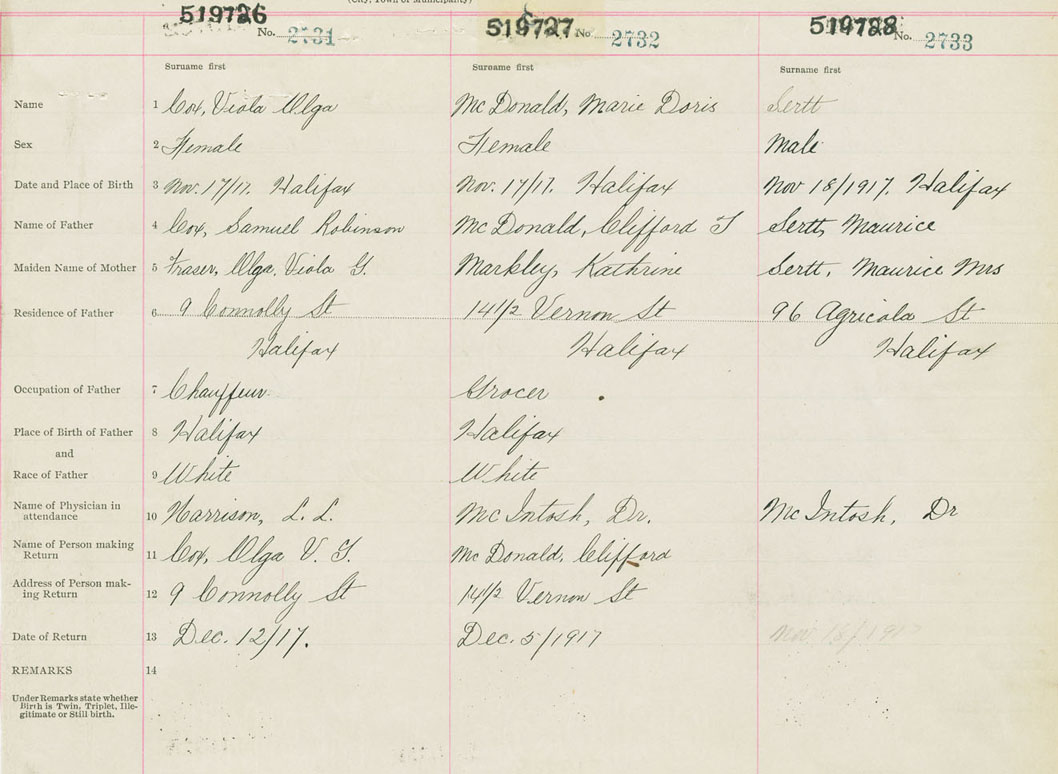 (City, Town or Municipality)
519726 No. 2731 519727 No 2732 519728 No. 2733
Surname first Surname first Surname first
Name 1 Cox, Viola Olga McDonald, Marie Doris Sertt
Sex 2 Female Female Male
Date and Place of Birth 3 Nov. 17/17. Halifax Nov. 17/17. Halifax Nov 18/1917. Halifax
Name of Father 4 Cox, Samuel Robinson McDonald, Clifford Sertt, Maurice
Maiden Name of Mother 5 Fraser, Olga. Viola G. Markley, Kathrine Sertt, Maurice Mrs
Residence of Father 6 9 Connolly St 14 1/2 Vernon St 96 Agricola St
Halifax Halifax Halifax
Occupation of Father 7 Chauffeur Grocer
Place of Birth of Father 8 Halifax Halifax
and
Race of Father 9 White White
Name of Physician in
attendance 10 Harrison, L. L. McIntosh, Dr. McIntosh, Dr
Name of Person making
Return 11 Cox, Olga V. McDonald, Clifford
Address of Person mak-
ing Return 12 9 Connolly St 14 1/2 Vernon St
Date of Return 13 Dec. 12/17. Dec. 5/1917 Nov. 18/1917
REMARKS 14
Under Remarks state whether
Birth is Twin, Triplet, Ille-
gitimate or Still birth.